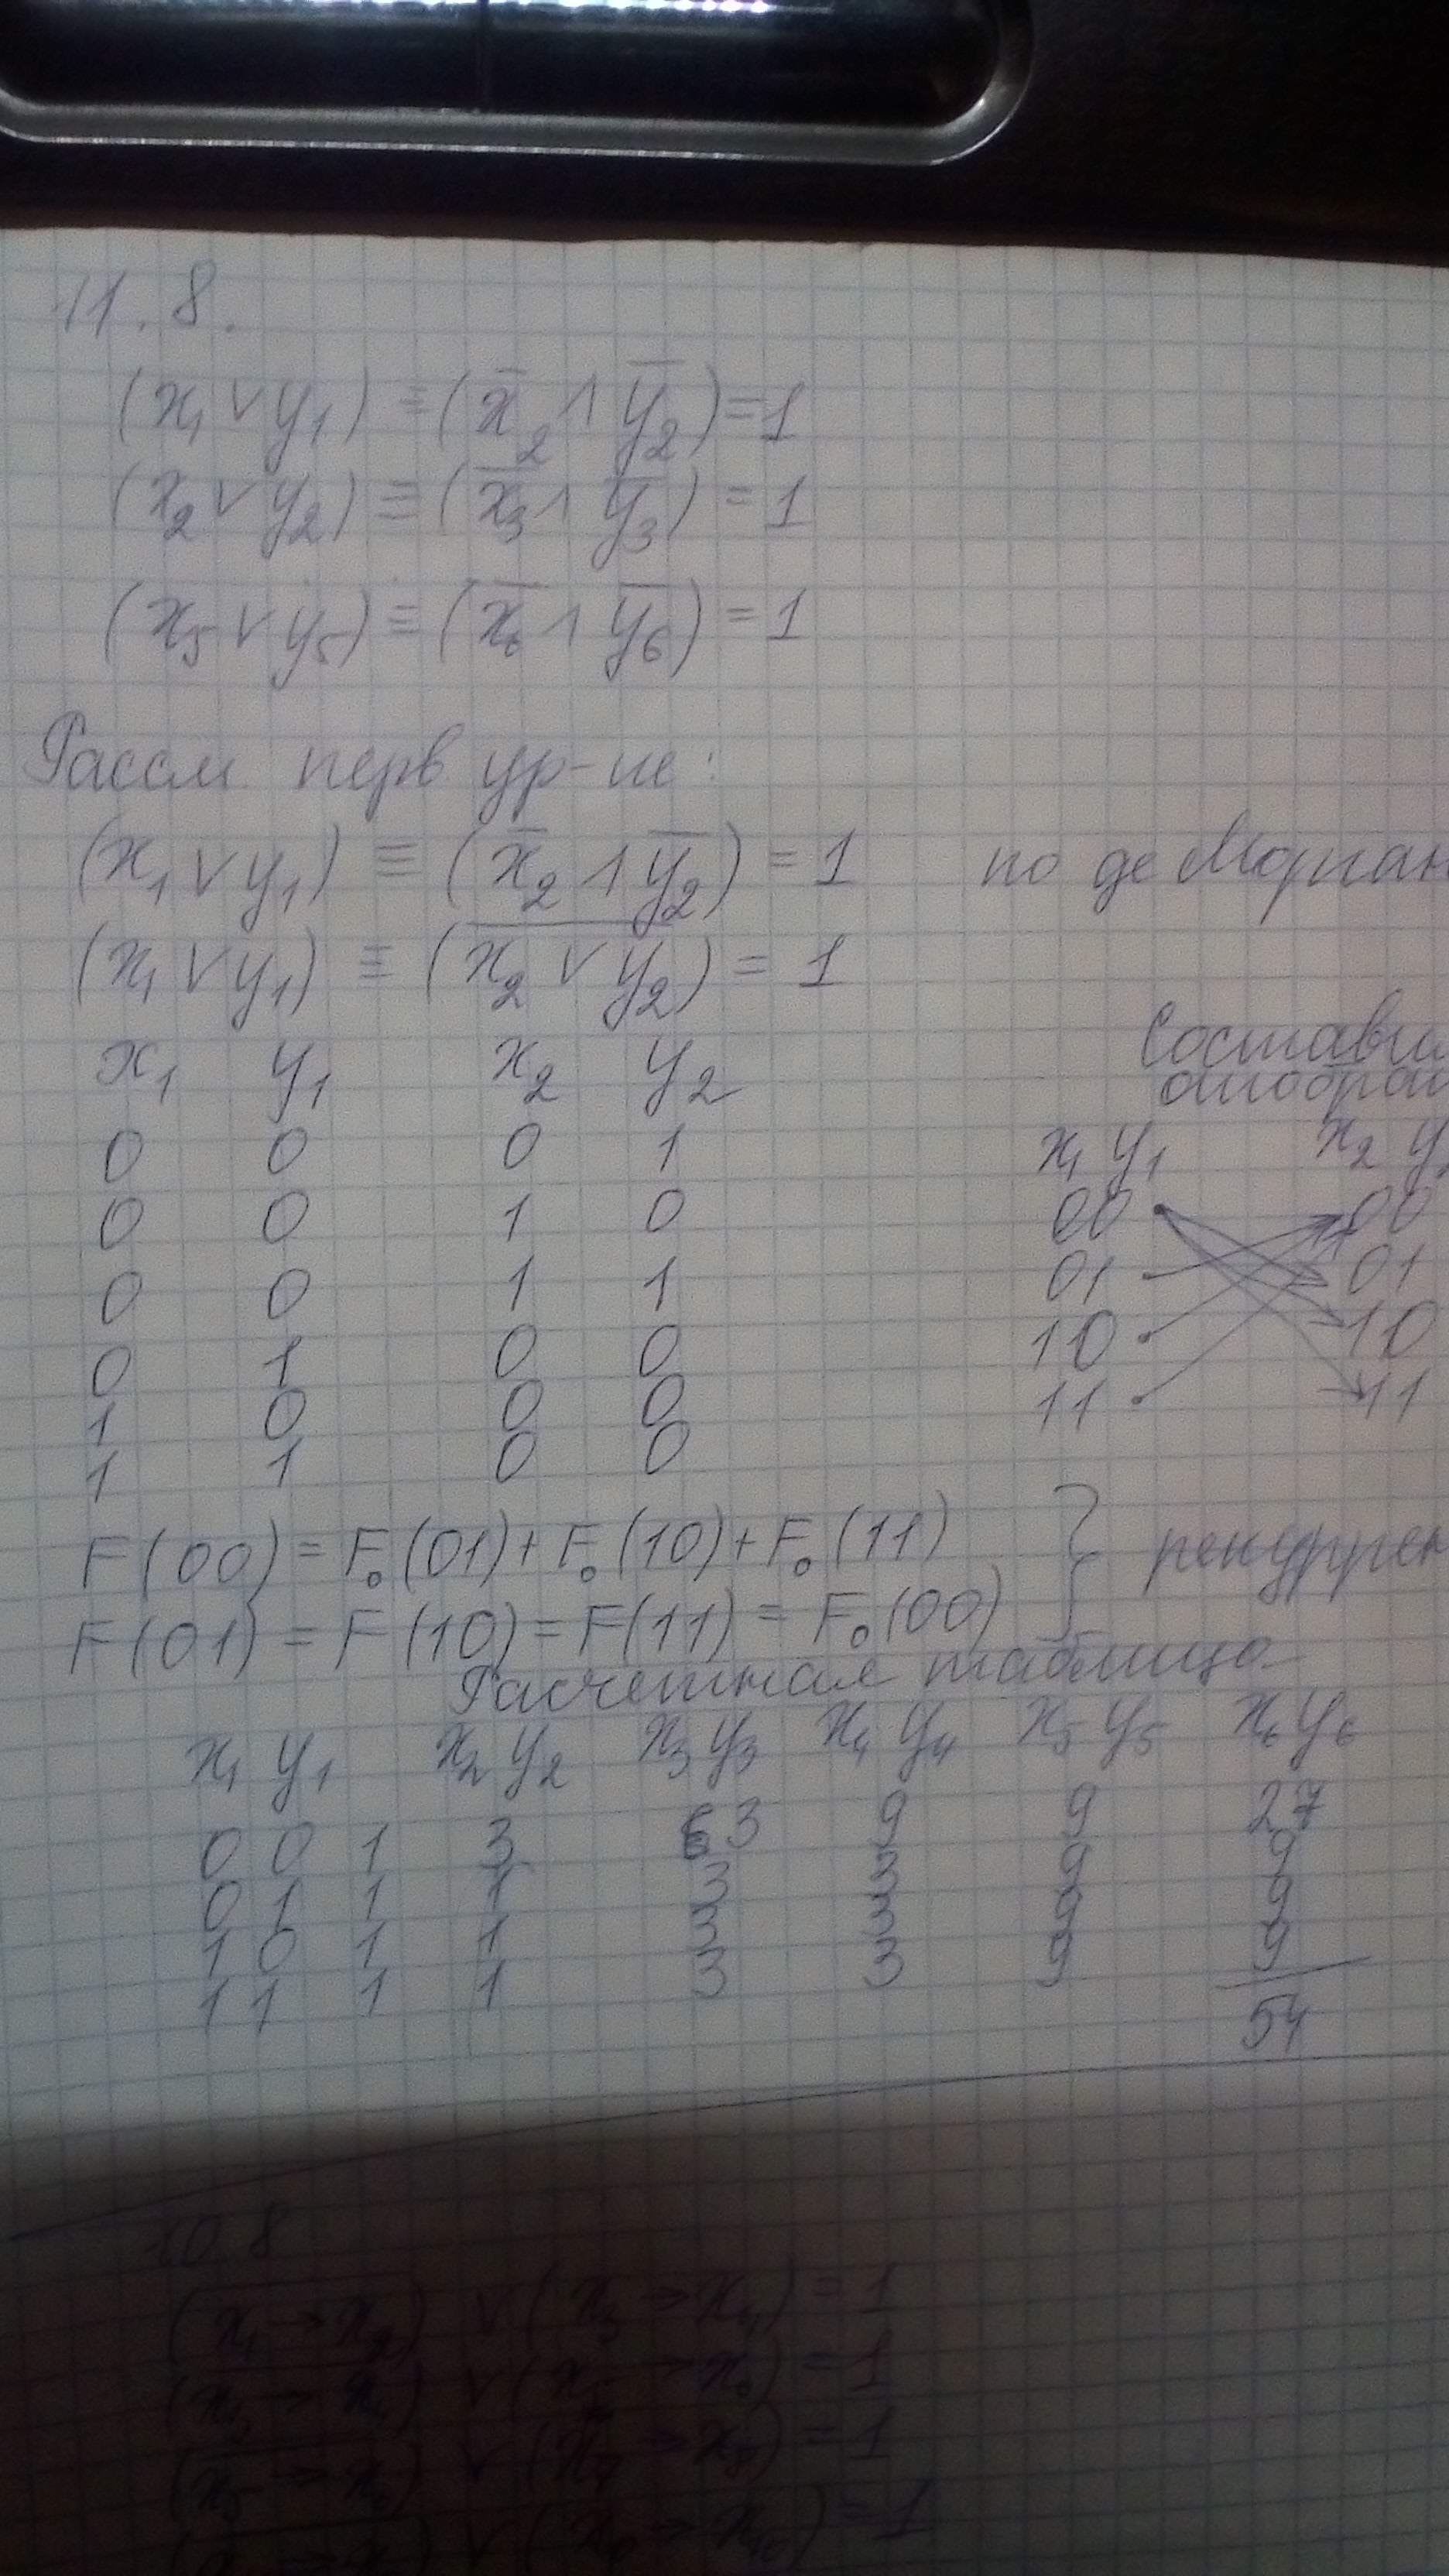 11.8.
(x₁ ∨ y₁) ≡ (x̅₂ ∧ y̅₂) = 1
(x₂ ∨ y₂) ≡ (x̅₃ ∧ y̅₃) = 1
(x₅ ∨ y₅) ≡ (x̅₆ ∧ y̅₆) = 1
Рассм. перв. ур-ие:
(x₁ ∨ y₁) ≡ (x̅₂ ∧ y̅₂) = 1 по де Морган
(x₁ ∨ y₁) ≡ (x̅₂̅ ̅∨̅ ̅y̅₂) = 1
Состави
отображ
x₁ y₁ x₂ y₂
0 0 0 1
0 0 1 0
0 0 1 1
0 1 0 0
1 0 0 0
1 1 0 0
x₁ y₁ x₂ y₂
00 00
01 01
10 10
11 11
F(00) = F₀(01) + F₀(10) + F₀(11)
F(01) = F(10) = F(11) = F₀(00)
} рекуррен
Расчетная таблица
x₁ y₁ x₂ y₂ x₃ y₃ x₄ y₄ x₅ y₅ x₆ y₆
0 0 1 3 3 9 9 27
0 1 1 1 3 3 9 9
1 0 1 1 3 3 9 9
1 1 1 1 3 3 9 9
54
10.8